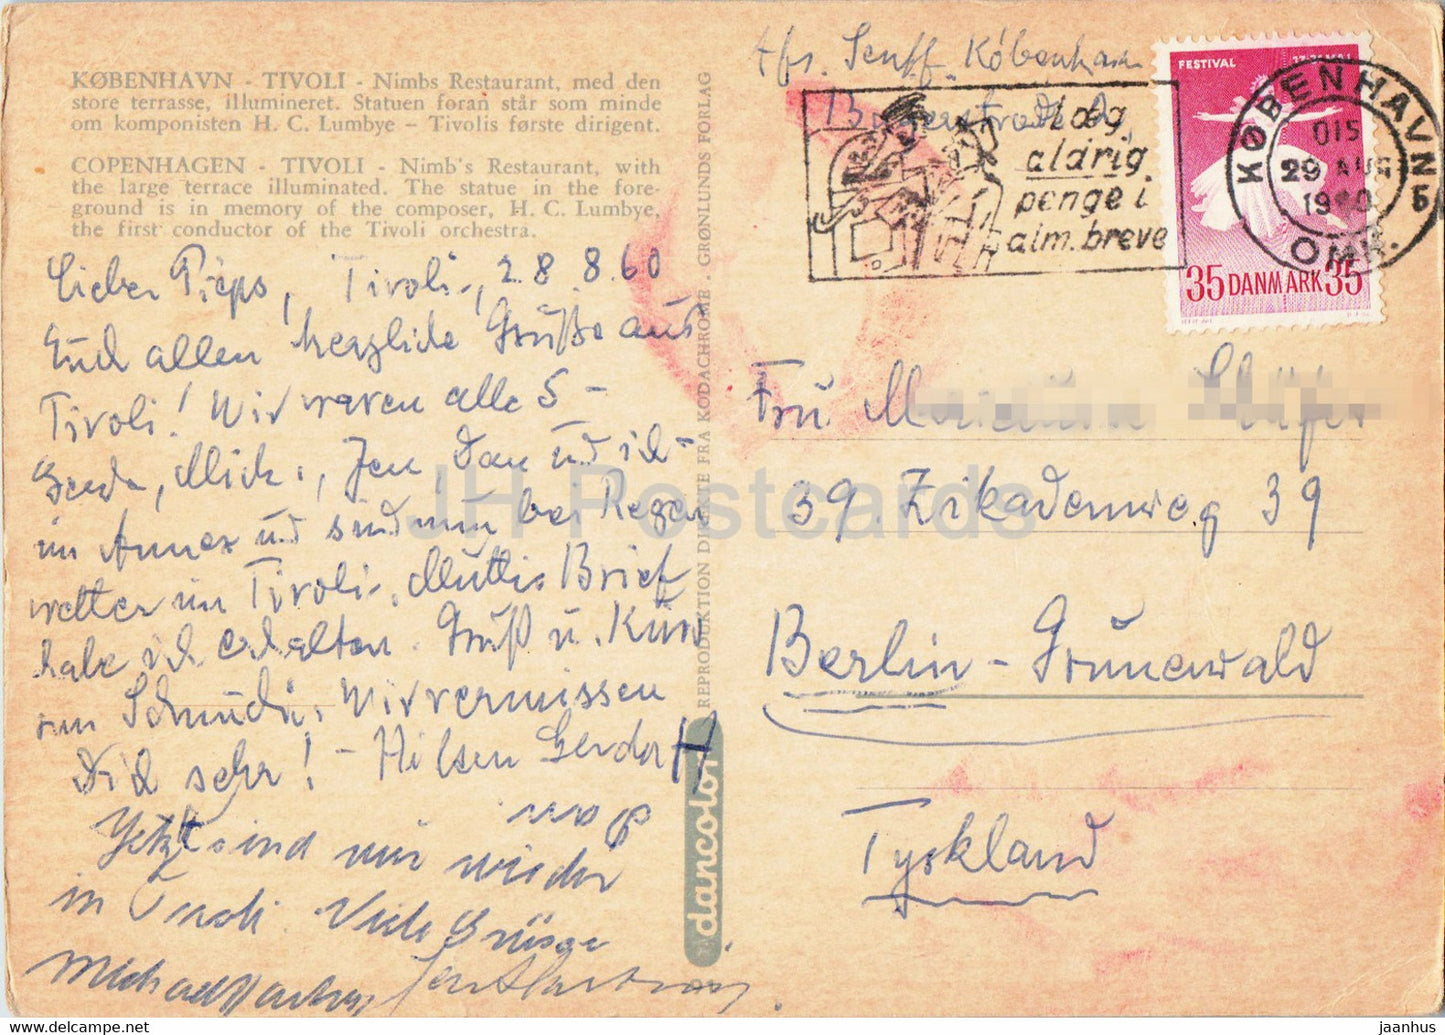 KØBENHAVN - TIVOLI - Nimbs Restaurant, med den
store terrasse, illumineret. Statuen foran står som minde
om komponisten H. C. Lumbye – Tivolis første dirigent.
COPENHAGEN - TIVOLI - Nimb's Restaurant, with
the large terrace illuminated. The statue in the fore-
ground is in memory of the composer, H. C. Lumbye,
the first conductor of the Tivoli orchestra.
Lieber Pieps, Tivoli, 28.8.60
Euch allen herzliche Grüße aus
Tivoli! Wir waren alle 5 -
Gerda, Mich., Jen, Dan und ich -
im Annex und sind nun bei Regen
wetter im Tivoli. Muttis Brief
habe ich erhalten. Gruß u.
Wir vermissen
Dich sehr! - Hilsen Gerda
Jetzt sind wir wieder
in Tivoli. Viele Grüsse
Michael
REPRODUKTION DIREKTE FRA KODACHROME - GRØNLUNDS FORLAG
dancolor
Afs. Senff København
Læg
aldrig
penge i
alm. breve
FESTIVAL
35 DANMARK 35
KØBENHAVN
015
29 AUG
1960
OMK.
Fru
39. Zikadenweg 39
Berlin - Grunewald
Tyskland
JH Postcards
jaanhus